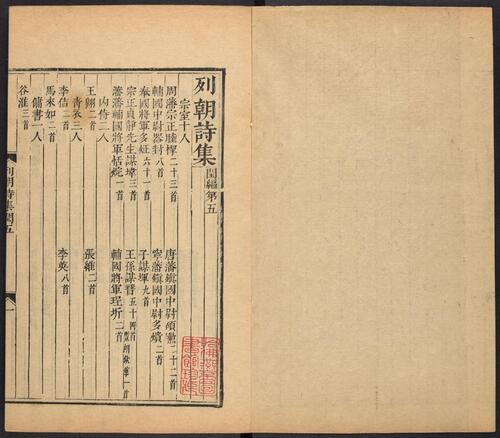 列朝詩集 閏編第五
宗室十人
周藩宗正睦㮮二十三首 唐藩鎮國中尉碩爋二十二首
輔國中尉器封八首 寧藩鎮國中尉多熿二首
奉國將軍多炡六十一首 子謀 九首
宗正貞靜先生謀㙔三首 王孫謀晉五十四首 一首
瀋藩輔國將軍恬烷一首 輔國將軍珵圻二首
內侍二人
王翱二首 張維二首
青衣三人
李佶二首 李英八首
馬來如二首
傭書一人
谷淮三首
列朝詩集閏五 一